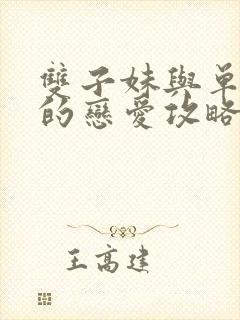 雙子妹與單
的戀愛攻略
王高建